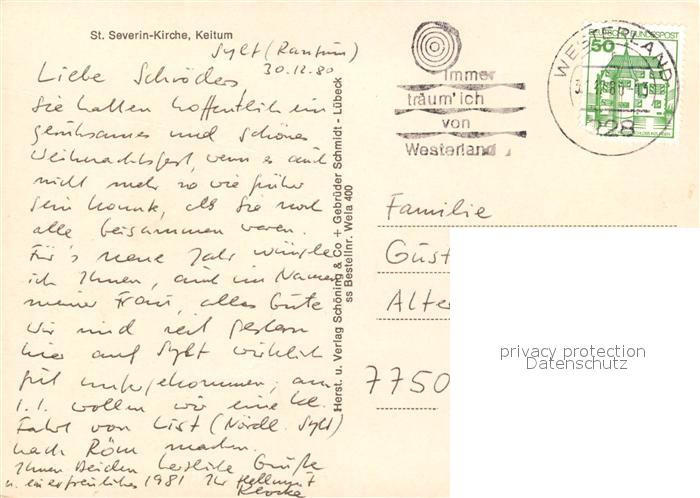 St. Severin-Kirche, Keitum
Sylt (Rantum)
30.12.80
Liebe Schröders
Sie hatten hoffentlich ein
geruhsames und schönes
Weihnachtsfest, wenn es auch
nicht mehr so wie früher
sein konnte, als Sie noch
alle beisammen waren.
Für's neue Jahr wünsche
ich Ihnen, auch im Namen
meiner Frau, alles Gute
Wir sind seit gestern
hier auf Sylt wirklich
gut untergekommen; am
1.1. wollen wir eine kl.
Fahrt von List (Nördl. Sylt)
nach Röm machen.
Ihnen Beiden herzliche Grüße
u. ein erfreuliches 1981 Ihr Hellmut
Herst. u. Verlag Schöning & Co + Gebrüder Schmidt - Lübeck
ss Bestellnr. Wela 400
Immer
träum' ich
von
Westerland
WESTERLAND
DEUTSCHE BUNDESPOST
50
Familie
Gust
Alte
7750
privacy protection
Datenschutz